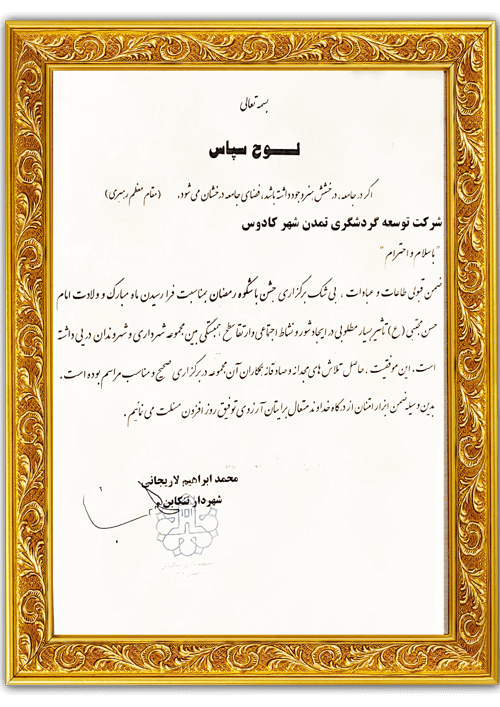 بسمه تعالی
لوح سپاس
اگر در جامعه، درخشش هنر وجود داشته باشد، فضای جامعه درخشان می شود. (مقام معظم رهبری)
شرکت توسعه گردشگری تمدن شهر کادوس
"باسلام و احترام"
ضمن قبولی طاعات و عبادات ، بی شک برگزاری جشن باشکوه رمضان بمناسبت فرا رسیدن ماه مبارک و ولادت امام
حسن مجتبی (ع) تأثیر بسیار مطلوبی در ایجاد شور و نشاط اجتماعی و ارتقا سطح همبستگی بین مجموعه شهرداری و شهروندان در پی داشته
است. این موفقیت ، حاصل تلاش های مجدانه و صادقانه همکاران آن مجموعه در برگزاری صحیح و مناسب مراسم بوده است.
بدین وسیله ضمن ابراز امتنان از درگاه خداوند متعال برایتان آرزوی توفیق روز افزون مسئلت می نمائیم.
محمد ابراهیم لاریجانی
شهردار تنکابن